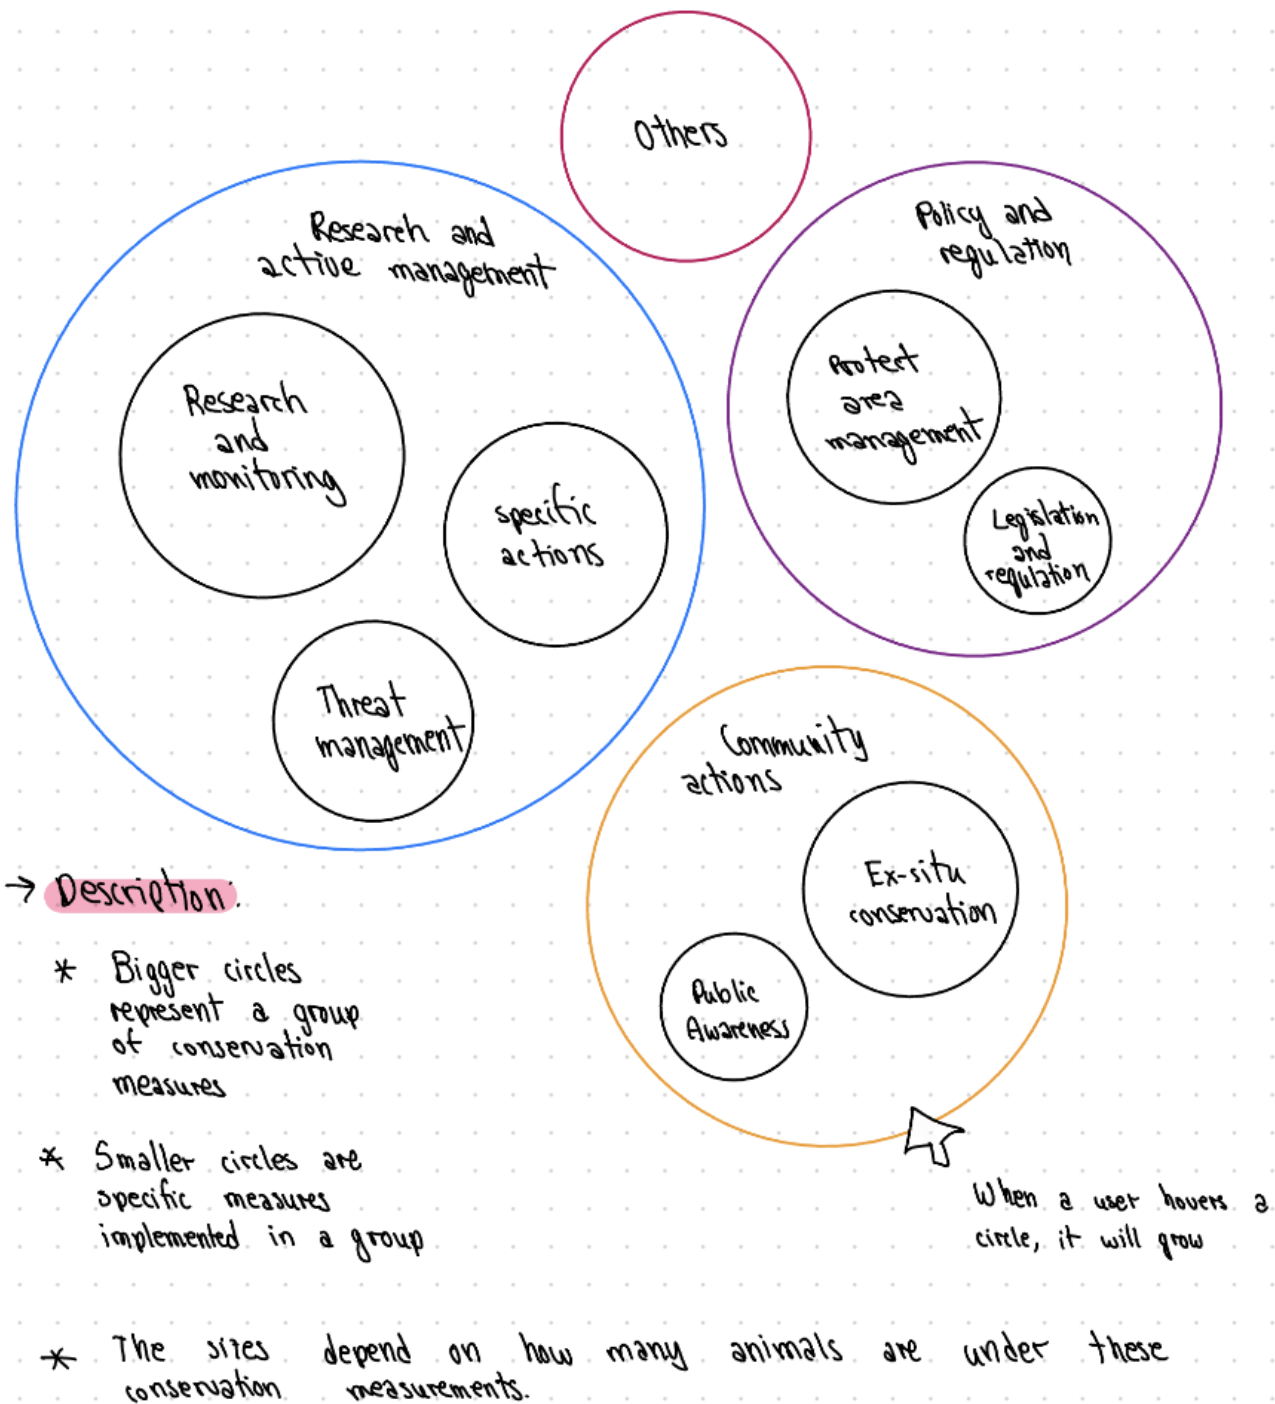 Others
Research and
active management
Research
and
monitoring
specific
actions
Threat
management
Policy and
regulation
Protect
area
management
Legislation
and
regulation
Community
actions
Ex-situ
conservation
Public
Awareness
→ Description:
* Bigger circles
represent a group
of conservation
measures
* Smaller circles are
specific measures
implemented in a group
When a user hovers a
circle, it will grow
* The sizes depend on how many animals are under these
conservation measurements.